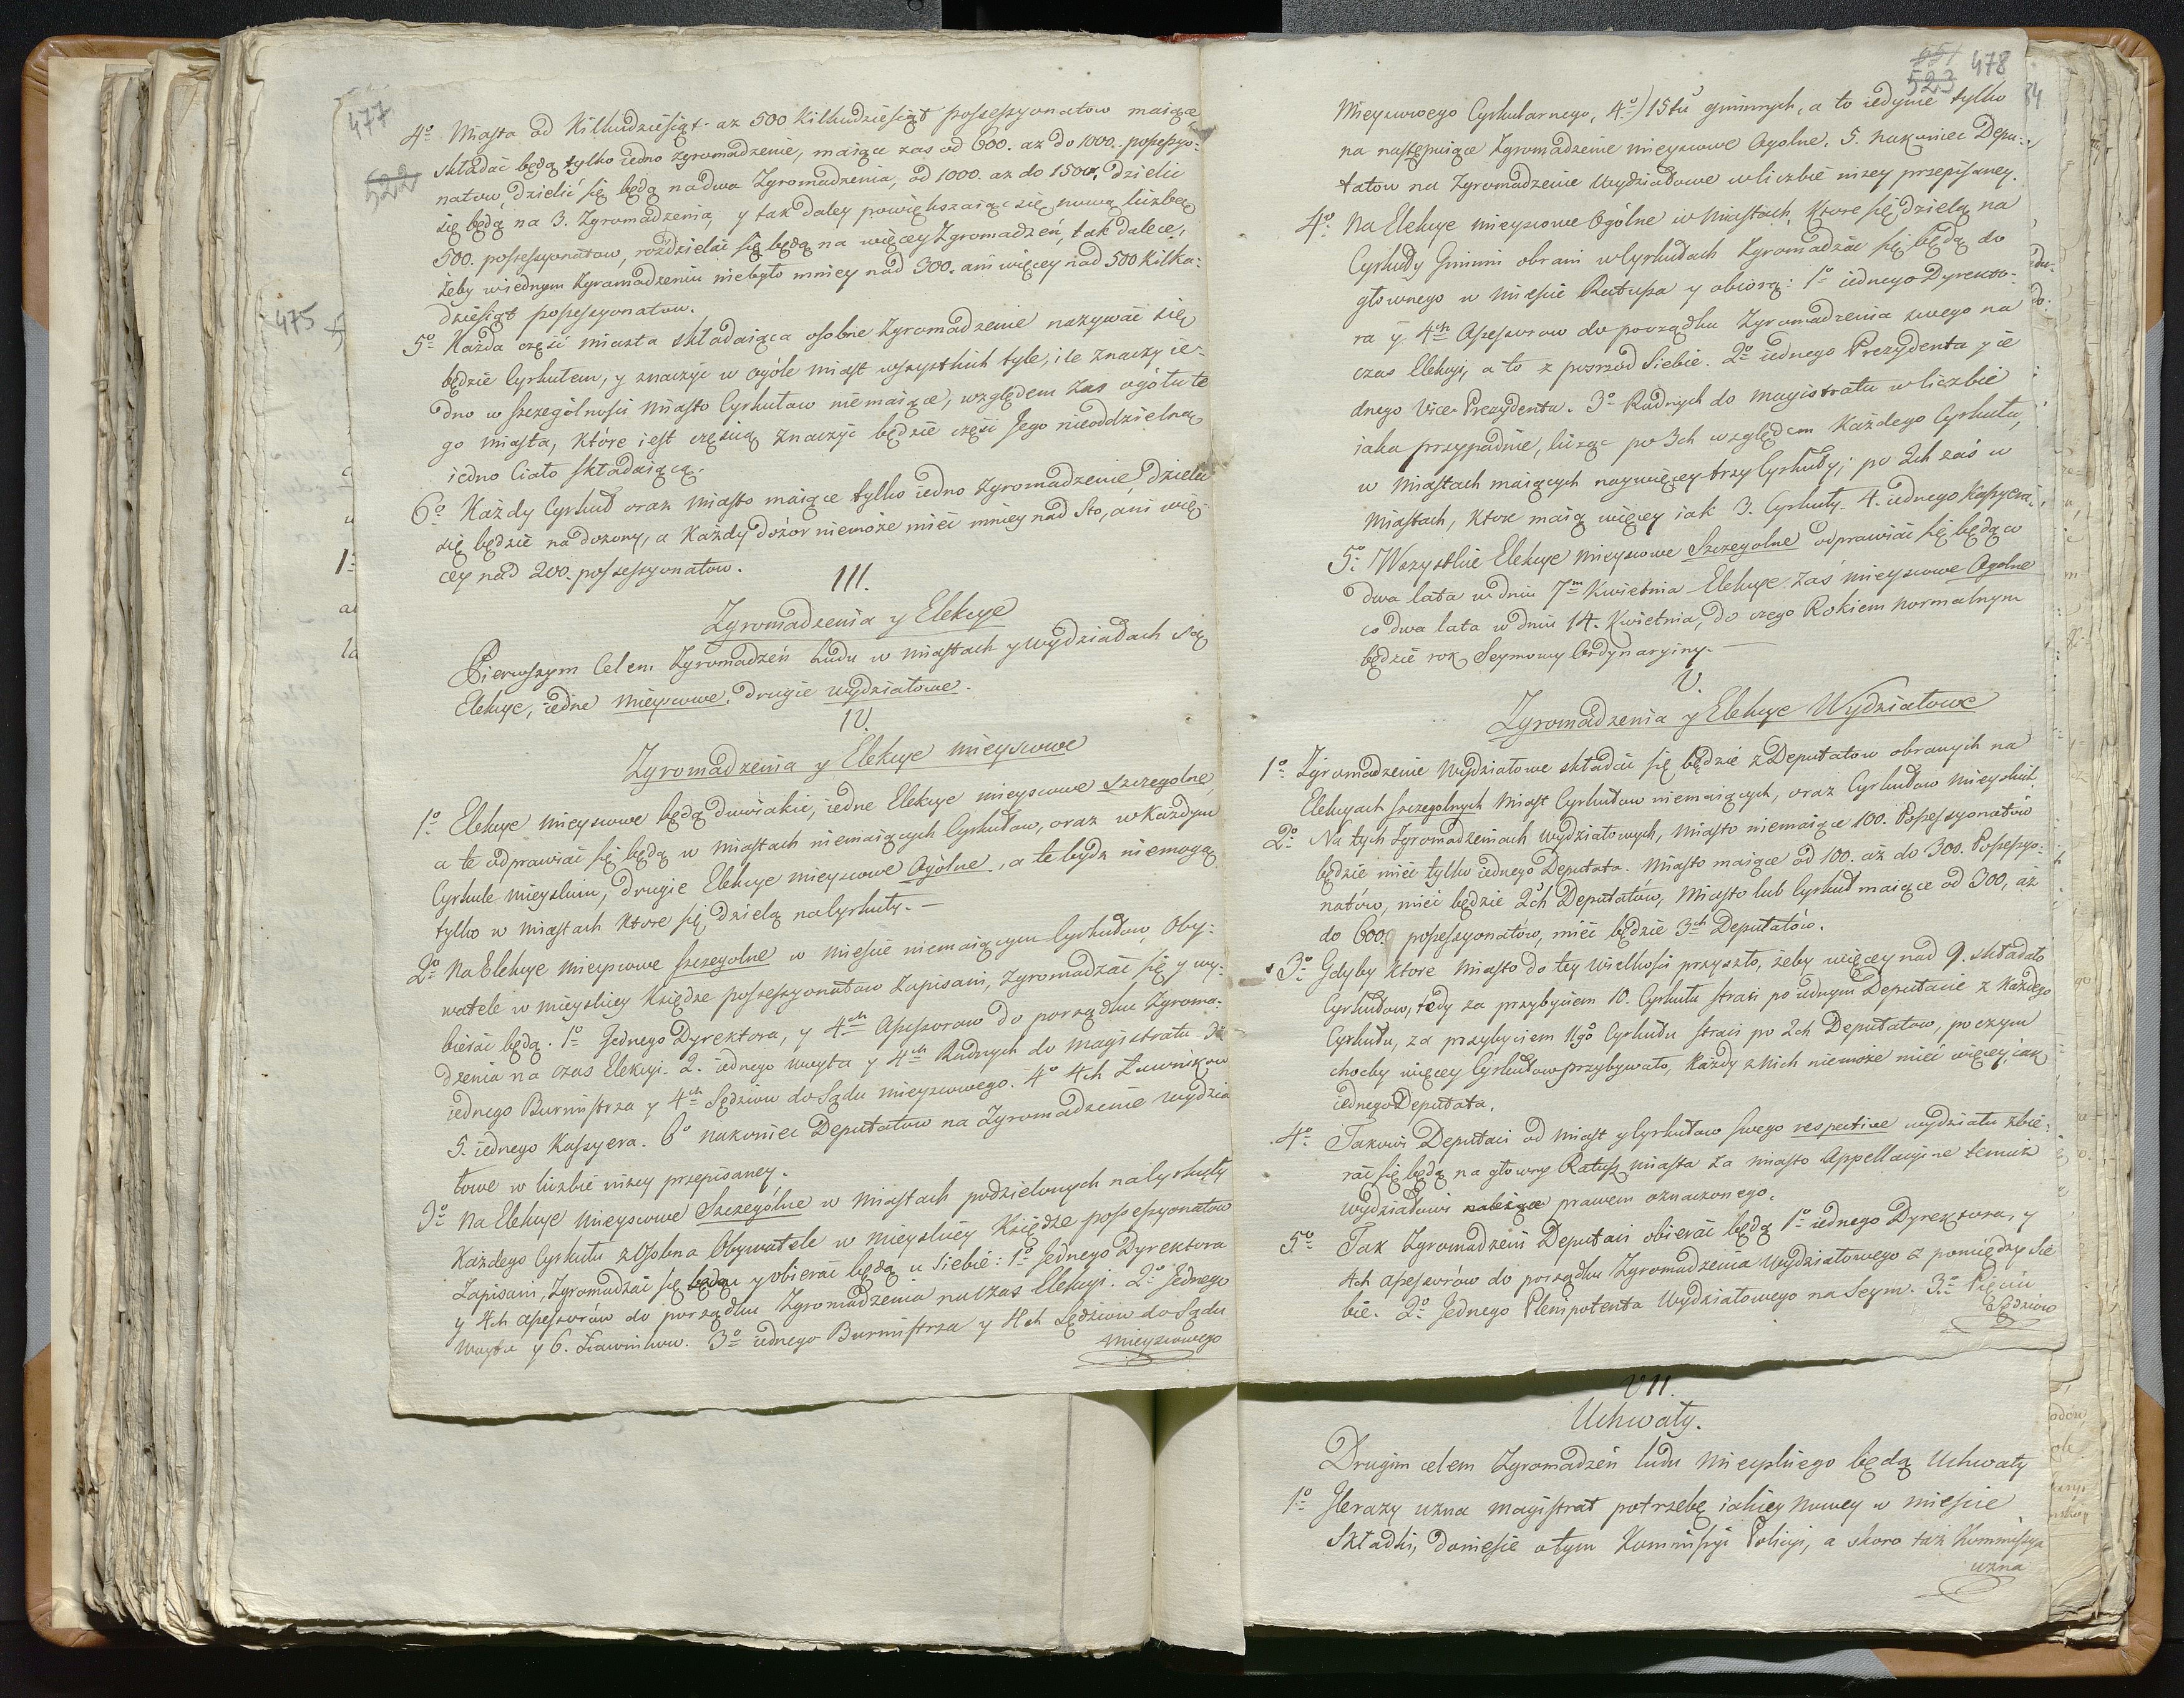 477
522
4º Miasta od Kilkudziesiąt aż 500 kilkudziesiąt possessyonatow maiące
składać będą tylko iedno zgromadzenie, maiące zas od 600. aż do 1000. possessyo-
natow, dzielić się będą na dwa Zgromadzenia, od 1000. aż do 1500. dzielić
się będą na 3. Zgromadzenia, y tak daley powiększaiąc się nową liczbą
500. possessyonatow, rozdzielać się będą na więcey Zgromadzeń, tak dalece,
żeby w iednym Zgromadzeniu niebyło mniey nad 300. ani więcey nad 500 kilka-
dziesiąt possessyonatow.
5º Każda część miasta składaiąca osobne Zgromadzenie nazywać się
będzie Cyrkułem, y znaczyć w ogóle miast wszystkich tyle, ile znaczy ie-
dno w szczególności Miasto Cyrkułow niemaiące, względem zas ogółu te
go miasta, które iest częścią znaczyć będzie część Jego nieoddzielną
iedno Ciało składaiącą.
6º Każdy Cyrkuł oraz Miasto maiące tylko iedno Zgromadzenie dzielić
się będzie na dozory, a Każdy dozór niemoże mieć mniey nad Sto, ani wię-
cey nad 200. possessyonatow.
III.
Zgromadzenia y Elekcye
Pierwszym Celem Zgromadzeń Ludu w Miastach y wydziałach są
Elekcye, iedne mieyscowe, drugie wydziałowe.
IV.
Zgromadzenia y Elekcye mieyscowe
1º Elekcye mieyscowe będą dwoiakie, iedne Elekcye mieyscowe szczegolne,
a te odprawiać się będą w miastach niemaiących Cyrkułow, oraz w Każdym
Cyrkule mieyskim, drugie Elekcye mieyscowe Ogólne, a te bydź niemogą
tylko w miastach ktore się dzielą na Cyrkuły.
2º Na Elekcye mieyscowe szczegolne w mieście niemaiącym Cyrkułow, Oby-
watele w mieyskiey Księdze possessyonatow Zapisani, Zgromadzać się y wy-
bierać będą. 1º Jednego Dyrektora, y 4ch Assessorow do porządku Zgroma-
dzenia na czas Elekcyi. 2. iednego woyta y 4ch Radnych do magistratu. 3º
iednego Burmistrza y 4ch Sędziow do Sądu mieyscowego. 4º 4ch Ławnikow
5. iednego Kassyera. 6º nakoniec Deputatow na Zgromadzenie wydzia
łowe w liczbie niżey przepisaney.
3º Na Elekcye mieyscowe Szczególne w Miastach podzielonych na Cyrkuły
Każdego Cyrkułu zosobna Obywatele w mieyskiey Księdze possessyonatow
Zapisani, Zgromadzać się będą y obierać będą u siebie: 1º Jednego Dyrektora
y 4ch assessorów do porządku Zgromadzenia na czas Elekcyi. 2º Jednego
Woyta y 6. Ławnikow. 3º iednego Burmistrza y 4ch Sędziow do Sądu
mieyscowego
475
523
478
Mieyscowego Cyrkularnego, 4º) 15tu gminnych, a to iedynie tylko
na następuiące Zgromadzenie mieyscowe Ogolne. 5. nakoniec Depu-
tatow na Zgromadzenie Wydziałowe w liczbie niżey przepisaney.
4º Na Elekcye mieyscowe Ogólne w Miastach, Ktore się dzielą na
Cyrkuły Gminni obrani w Cyrkułach Zgromadzać się będą do
głownego w mieście Ratusza y obiorą: 1º iednego Dyrekto-
ra y 4ch Assessorow do porządku Zgromadzenia swego na
czas Elekcyi, a to z posrzod Siebie. 2º iednego Prezydenta y ie
dnego Vice-Prezydenta. 3º Radnych do Magistratu w liczbie
iaka przypadnie, licząc po 3ch względem Każdego Cyrkułu,
w Miastach maiących naywięcey trzy Cyrkuły; po 2ch zaś w
Miastach, Ktore maią więcey iak 3. Cyrkuły. 4. iednego Kassyera.
5º Wszystkie Elekcye mieyscowe Szczegolne odprawiać się będą co
dwa lata w dniu 7m Kwietnia Elekcye zaś mieyscowe Ogolne
co dwa lata w dniu 14. Kwietnia, do czego Rokiem normalnym
będzie rok Seymowy Ordynaryiny.
V.
Zgromadzenia y Elekcye Wydziałowe
1º Zgromadzenie Wydziałowe składać się będzie z Deputatow obranych na
Elekcyach szczegolnych Miast Cyrkułow niemaiących, oraz Cyrkułow mieyskich.
2º Na tych Zgromadzeniach wydziałowych, Miasto niemaiące 100. Possessyonatów
będzie mieć tylko iednego Deputata. Miasto maiące od 100. aż do 300. Possessyo-
natów, mieć będzie 2ch Deputatów, Miasto lub Cyrkuł maiące od 300, aż
do 600. possessyonatów, mieć będzie 3ch Deputatów.
3º Gdyby ktore Miasto do tey wielkości przyszło, żeby więcey nad 9. składało
Cyrkułow, tedy za przybyciem 10. Cyrkułu straci po iednym Deputacie z Każdego
Cyrkułu, za przybyciem 11go Cyrkułu straci po 2ch Deputatow, poczym
choćby więcey Cyrkułow przybywało, Każdy z nich niemoże mieć więcey, iak
iednego Deputata.
4º Takowi Deputaci od Miast y Cyrkułow swego respective wydziału zbie-
rać się będą na głowny Ratusz miasta za Miasto Appellacyine temuż
Wydziałowi należące prawem oznaczonego.
5to Tak Zgromadzeni Deputaci obierać będą 1º iednego Dyrektora, y
4ch assessorów do porządku Zgromadzenia Wydziałowego z pomiędzy sie
bie. 2º Jednego Plenipotenta Wydziałowego na Seym. 3º Pięciu
Sędziow
VII.
Uchwały.
Drugim celem Zgromadzeń ludu mieyskiego będą Uchwały
1º Ilerazy uzna Magistrat potrzebę iakiey nowey w mieście
Składki, doniesie o tym Kommissyi Policyi, a skoro taż Kommissya
uzna